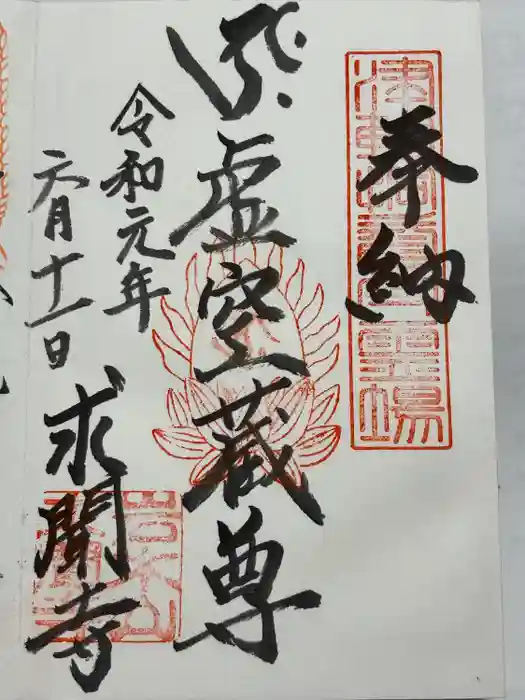 奉納
虚空蔵尊
令和元年
六月十一日
求聞寺